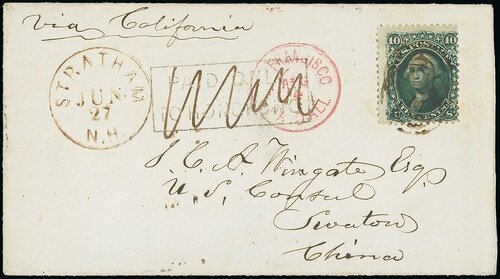 via California
STRATHAM
JUN
27
N.H.
PAID
FRANCISCO
AUG
10 10
U.S. POSTAGE
J. C. A. Wingate Esq.
U. S. Consul
Swatow
China